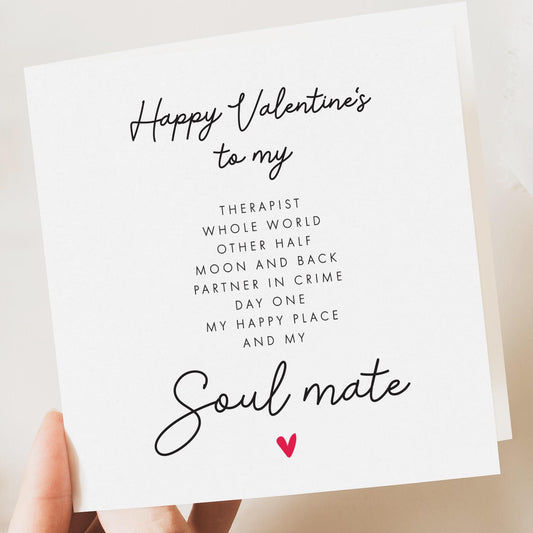 Happy Valentine's
to my
THERAPIST
WHOLE WORLD
OTHER HALF
MOON AND BACK
PARTNER IN CRIME
DAY ONE
MY HAPPY PLACE
AND MY
Soul mate